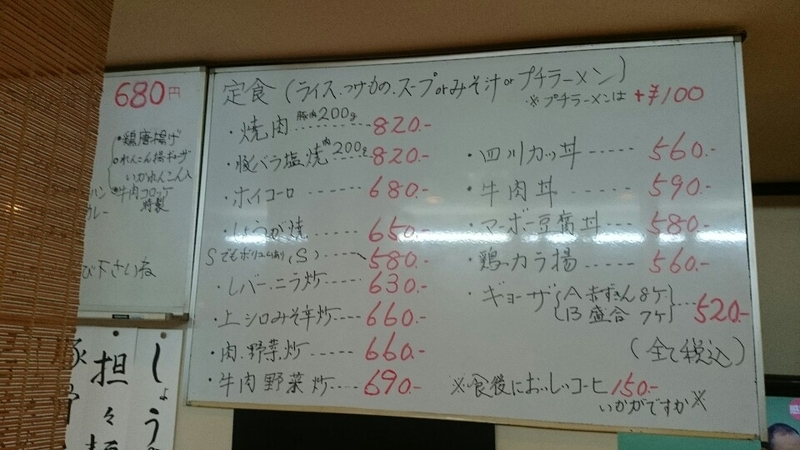 680円
・鶏唐揚げ
いかれんこん入
・牛肉コロッケ
特製
カレー
び下さいね
定食(ライス.つけもの.スープorみそ汁orプチラーメン)
※プチラーメンは+¥100
・焼肉 豚肉200g……820.-
・豚バラ塩焼 肉200g……820.-
・ホイコーロ……680.-
・しょうが焼……650.-
Sでもボリュームあり(S)……580.-
・レバーニラ炒……630.-
・上シロみそ辛炒……660.-
・肉野菜炒……660.-
・牛肉野菜炒……690.-
・四川カツ丼……560.-
・牛肉丼……590.-
・マーボー豆腐丼……580.-
・鶏カラ揚……560.-
・ギョーザ{A 赤ずきん8ケ
{B 盛合 7ケ}……520.-
(全て税込)
※食後においしいコーヒ150.-
いかがですか※
担々麺
しょう